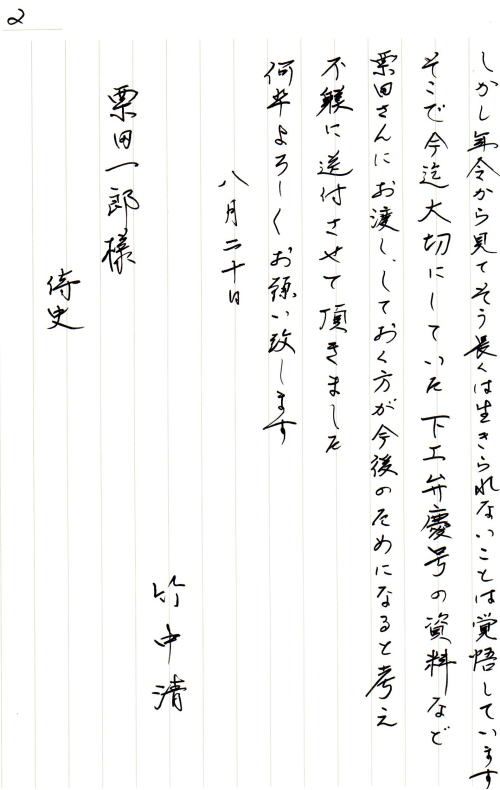 2
しかし年令から見てそう長くは生きられないことは覚悟しています
そこで今迄大切にしていた下工弁慶号の資料など
栗田さんにお渡し、しておく方が今後のためになると考え
不躾に送付させて頂きました
何卒よろしくお願い致します
八月二十日
竹中清
栗田一郎様
侍史